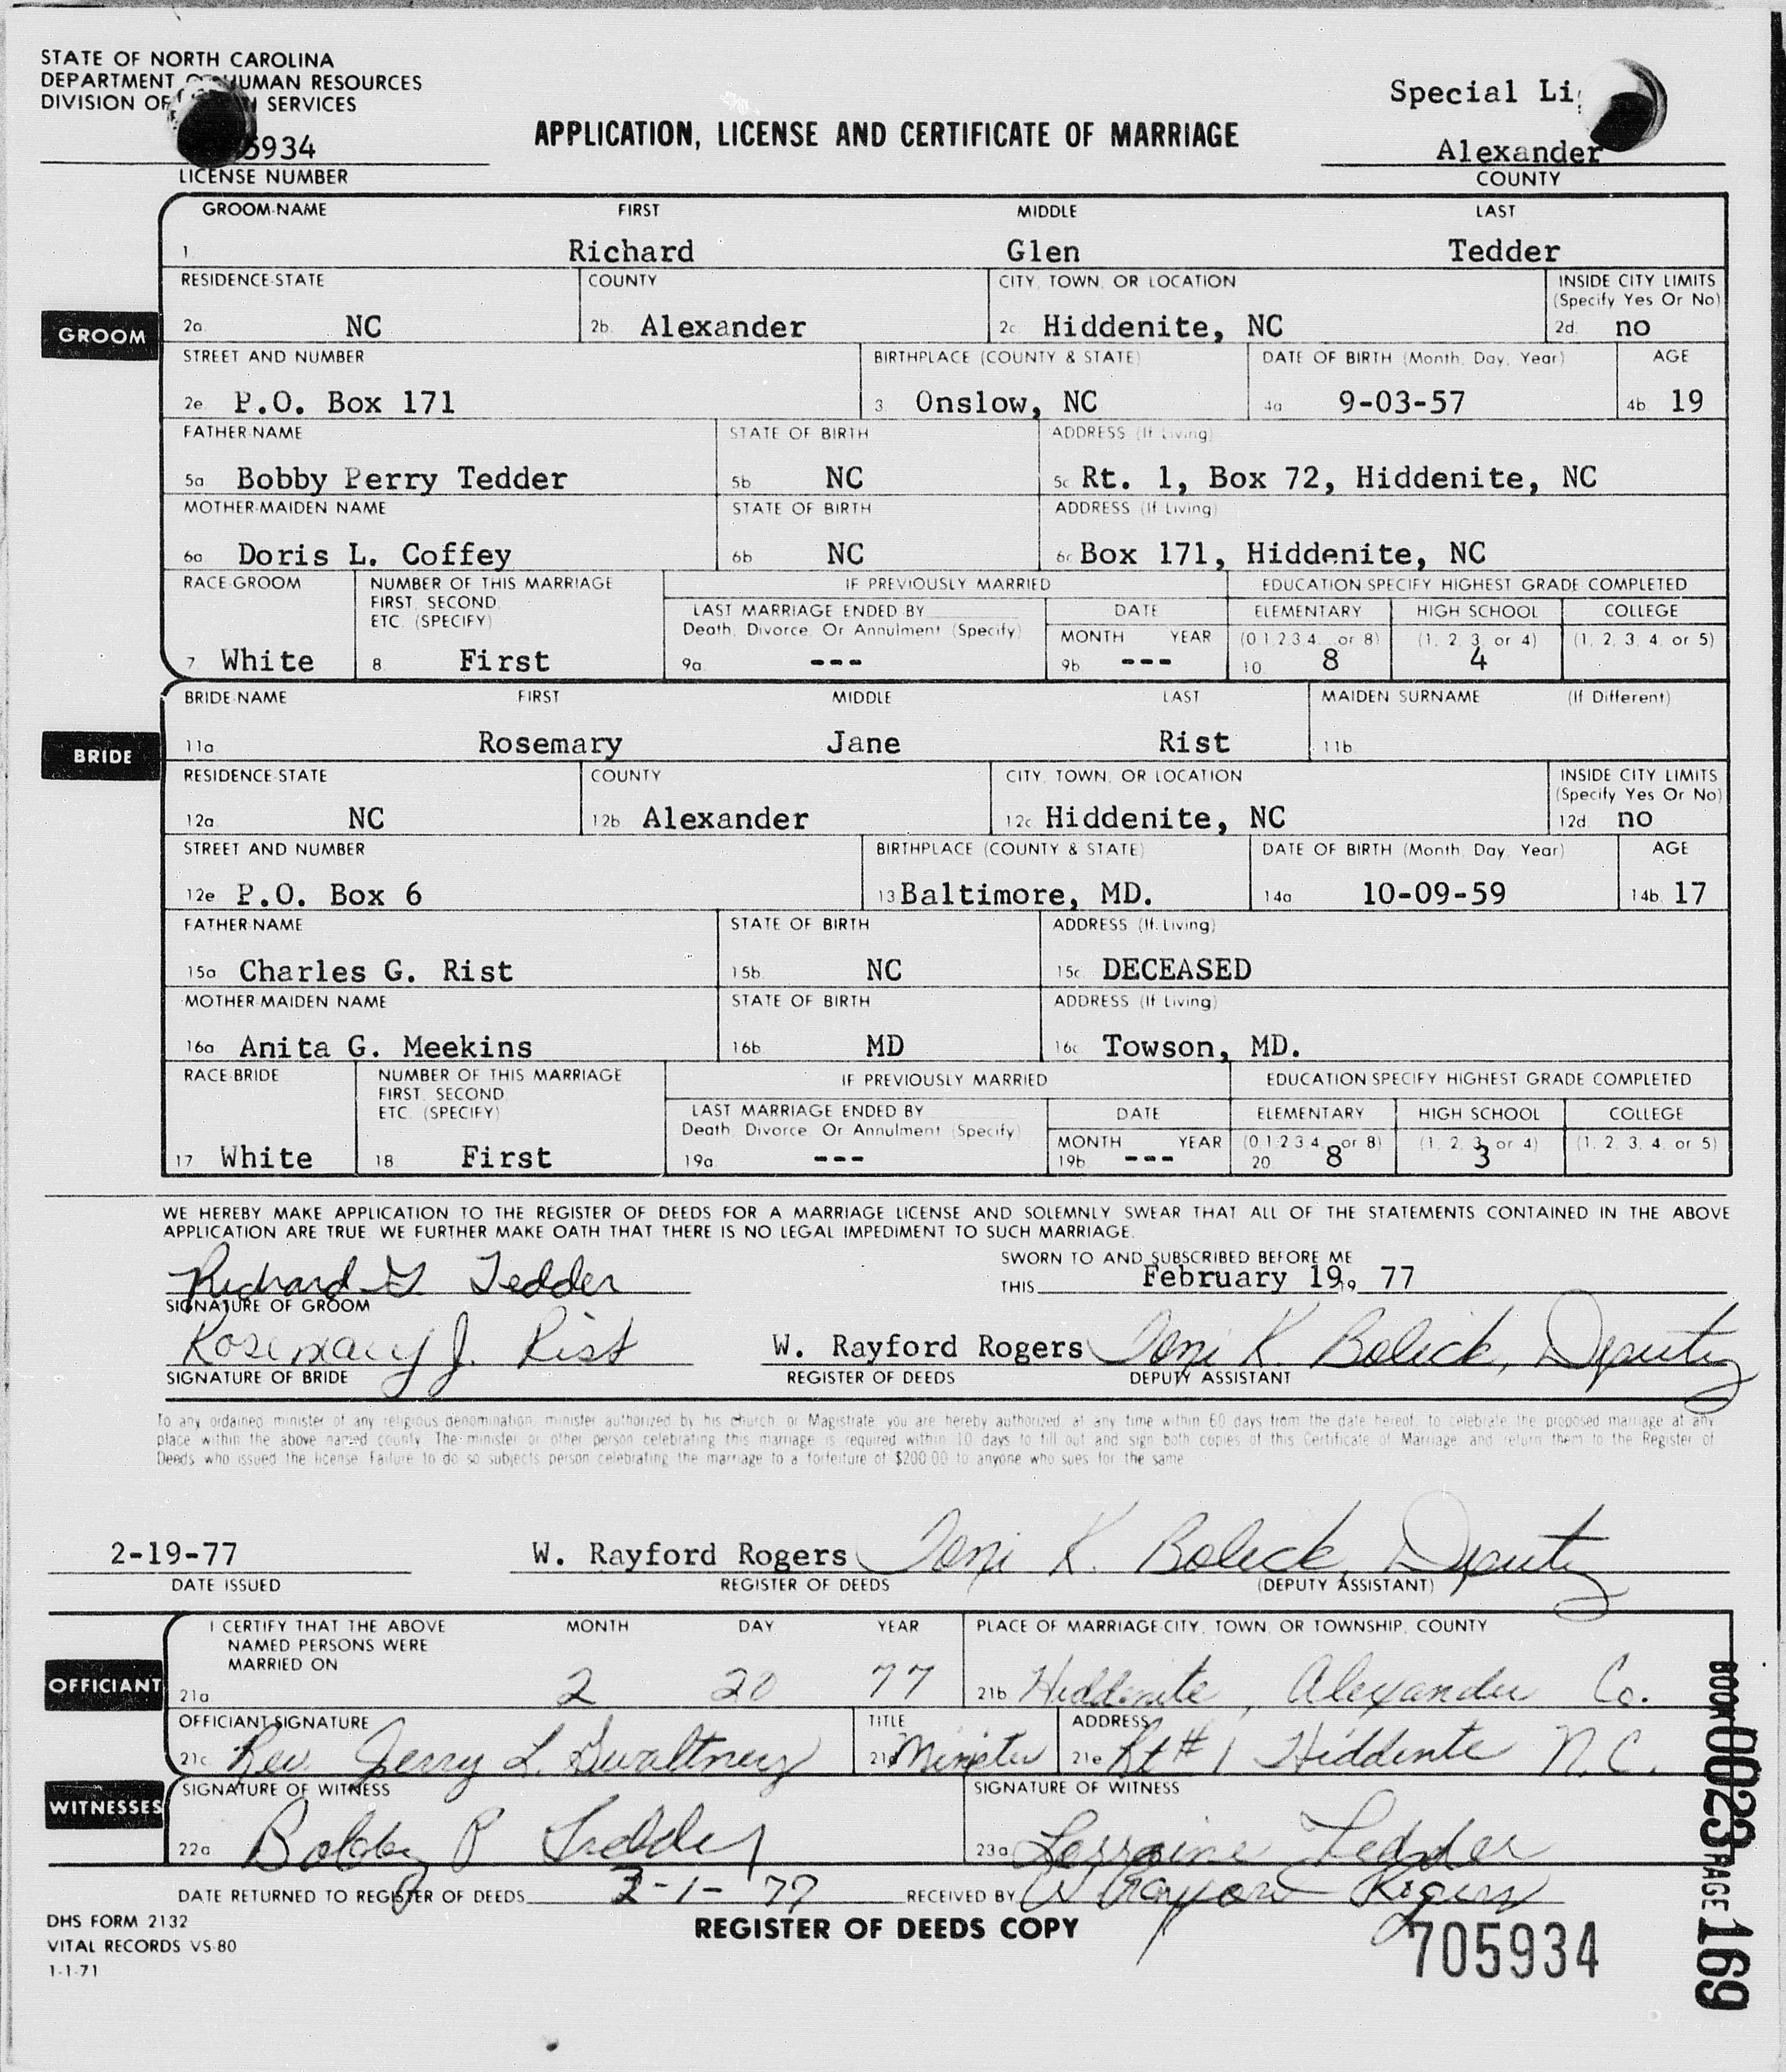 STATE OF NORTH CAROLINA
DEPARTMENT HUMAN RESOURCES
DIVISION OF SERVICES
Special
5934
LICENSE NUMBER
APPLICATION, LICENSE AND CERTIFICATE OF MARRIAGE
Alexander
COUNTY
GROOM-NAME FIRST MIDDLE LAST
1. Richard Glen Tedder
RESIDENCE-STATE COUNTY CITY, TOWN, OR LOCATION INSIDE CITY LIMITS
(Specify Yes Or No)
GROOM
2a. NC 2b. Alexander 2c. Hiddenite, NC 2d. no
STREET AND NUMBER BIRTHPLACE (COUNTY & STATE) DATE OF BIRTH (Month, Day, Year) AGE
2e. P.O. Box 171 3. Onslow, NC 4a. 9-03-57 4b. 19
FATHER-NAME STATE OF BIRTH ADDRESS (If Living)
5a. Bobby Perry Tedder 5b. NC 5c. Rt. 1, Box 72, Hiddenite, NC
MOTHER-MAIDEN NAME STATE OF BIRTH ADDRESS (If Living)
6a. Doris L. Coffey 6b. NC 6c. Box 171, Hiddenite, NC
RACE-GROOM NUMBER OF THIS MARRIAGE IF PREVIOUSLY MARRIED EDUCATION-SPECIFY HIGHEST GRADE COMPLETED
FIRST, SECOND,
ETC. (SPECIFY)
LAST MARRIAGE ENDED BY DATE ELEMENTARY HIGH SCHOOL COLLEGE
Death, Divorce, Or Annulment (Specify) MONTH YEAR (0,1,2,3,4, or 8) (1, 2, 3, or 4) (1, 2, 3, 4, or 5)
7. White 8. First 9a. --- 9b. --- 10. 8 4
BRIDE-NAME FIRST MIDDLE LAST MAIDEN SURNAME (If Different)
BRIDE
11a. Rosemary Jane Rist 11b.
RESIDENCE-STATE COUNTY CITY, TOWN, OR LOCATION INSIDE CITY LIMITS
(Specify Yes Or No)
12a. NC 12b. Alexander 12c. Hiddenite, NC 12d. no
STREET AND NUMBER BIRTHPLACE (COUNTY & STATE) DATE OF BIRTH (Month, Day, Year) AGE
12e. P.O. Box 6 13. Baltimore, MD. 14a. 10-09-59 14b. 17
FATHER-NAME STATE OF BIRTH ADDRESS (If Living)
15a. Charles G. Rist 15b. NC 15c. DECEASED
MOTHER-MAIDEN NAME STATE OF BIRTH ADDRESS (If Living)
16a. Anita G. Meekins 16b. MD 16c. Towson, MD.
RACE-BRIDE NUMBER OF THIS MARRIAGE IF PREVIOUSLY MARRIED EDUCATION-SPECIFY HIGHEST GRADE COMPLETED
FIRST, SECOND,
ETC. (SPECIFY)
LAST MARRIAGE ENDED BY DATE ELEMENTARY HIGH SCHOOL COLLEGE
Death, Divorce, Or Annulment (Specify) MONTH YEAR (0,1,2,3,4, or 8) (1, 2, 3, or 4) (1, 2, 3, 4, or 5)
17. White 18. First 19a. --- 19b. --- 20. 8 3
WE HEREBY MAKE APPLICATION TO THE REGISTER OF DEEDS FOR A MARRIAGE LICENSE AND SOLEMNLY SWEAR THAT ALL OF THE STATEMENTS CONTAINED IN THE ABOVE
APPLICATION ARE TRUE. WE FURTHER MAKE OATH THAT THERE IS NO LEGAL IMPEDIMENT TO SUCH MARRIAGE.
Richard G Tedder SWORN TO AND SUBSCRIBED BEFORE ME
SIGNATURE OF GROOM THIS February 19, 19 77
Rosemary J. Rist W. Rayford Rogers Toni K. Bolick, Deputy
SIGNATURE OF BRIDE REGISTER OF DEEDS DEPUTY ASSISTANT
To any ordained minister of any religious denomination, minister authorized by his church, or Magistrate, you are hereby authorized, at any time within 60 days from the date hereof, to celebrate the proposed marriage at any
place within the above named county. The minister or other person celebrating this marriage is required within 10 days to fill out and sign both copies of this Certificate of Marriage and return them to the Register of
Deeds who issued the license. Failure to do so subjects person celebrating the marriage to a forfeiture of $200.00 to anyone who sues for the same.
2-19-77 W. Rayford Rogers Toni K. Bolick, Deputy
DATE ISSUED REGISTER OF DEEDS (DEPUTY ASSISTANT)
I CERTIFY THAT THE ABOVE MONTH DAY YEAR PLACE OF MARRIAGE-CITY, TOWN, OR TOWNSHIP, COUNTY
NAMED PERSONS WERE
MARRIED ON
OFFICIANT
21a. 2 20 77 21b. Hiddenite, Alexander Co.
OFFICIANT-SIGNATURE TITLE ADDRESS
21c. Rev. Jerry L. Gwaltney 21d. Minister 21e. Rt # 1 Hiddenite N.C.
SIGNATURE OF WITNESS SIGNATURE OF WITNESS
WITNESSES
22a. Bobby P Tedder 23a. Lorraine Tedder
DATE RETURNED TO REGISTER OF DEEDS 3-1-77 RECEIVED BY W Rayford Rogers
DHS FORM 2132
VITAL RECORDS VS-80
1-1-71
REGISTER OF DEEDS COPY
705934
BOOK 0023 PAGE 169